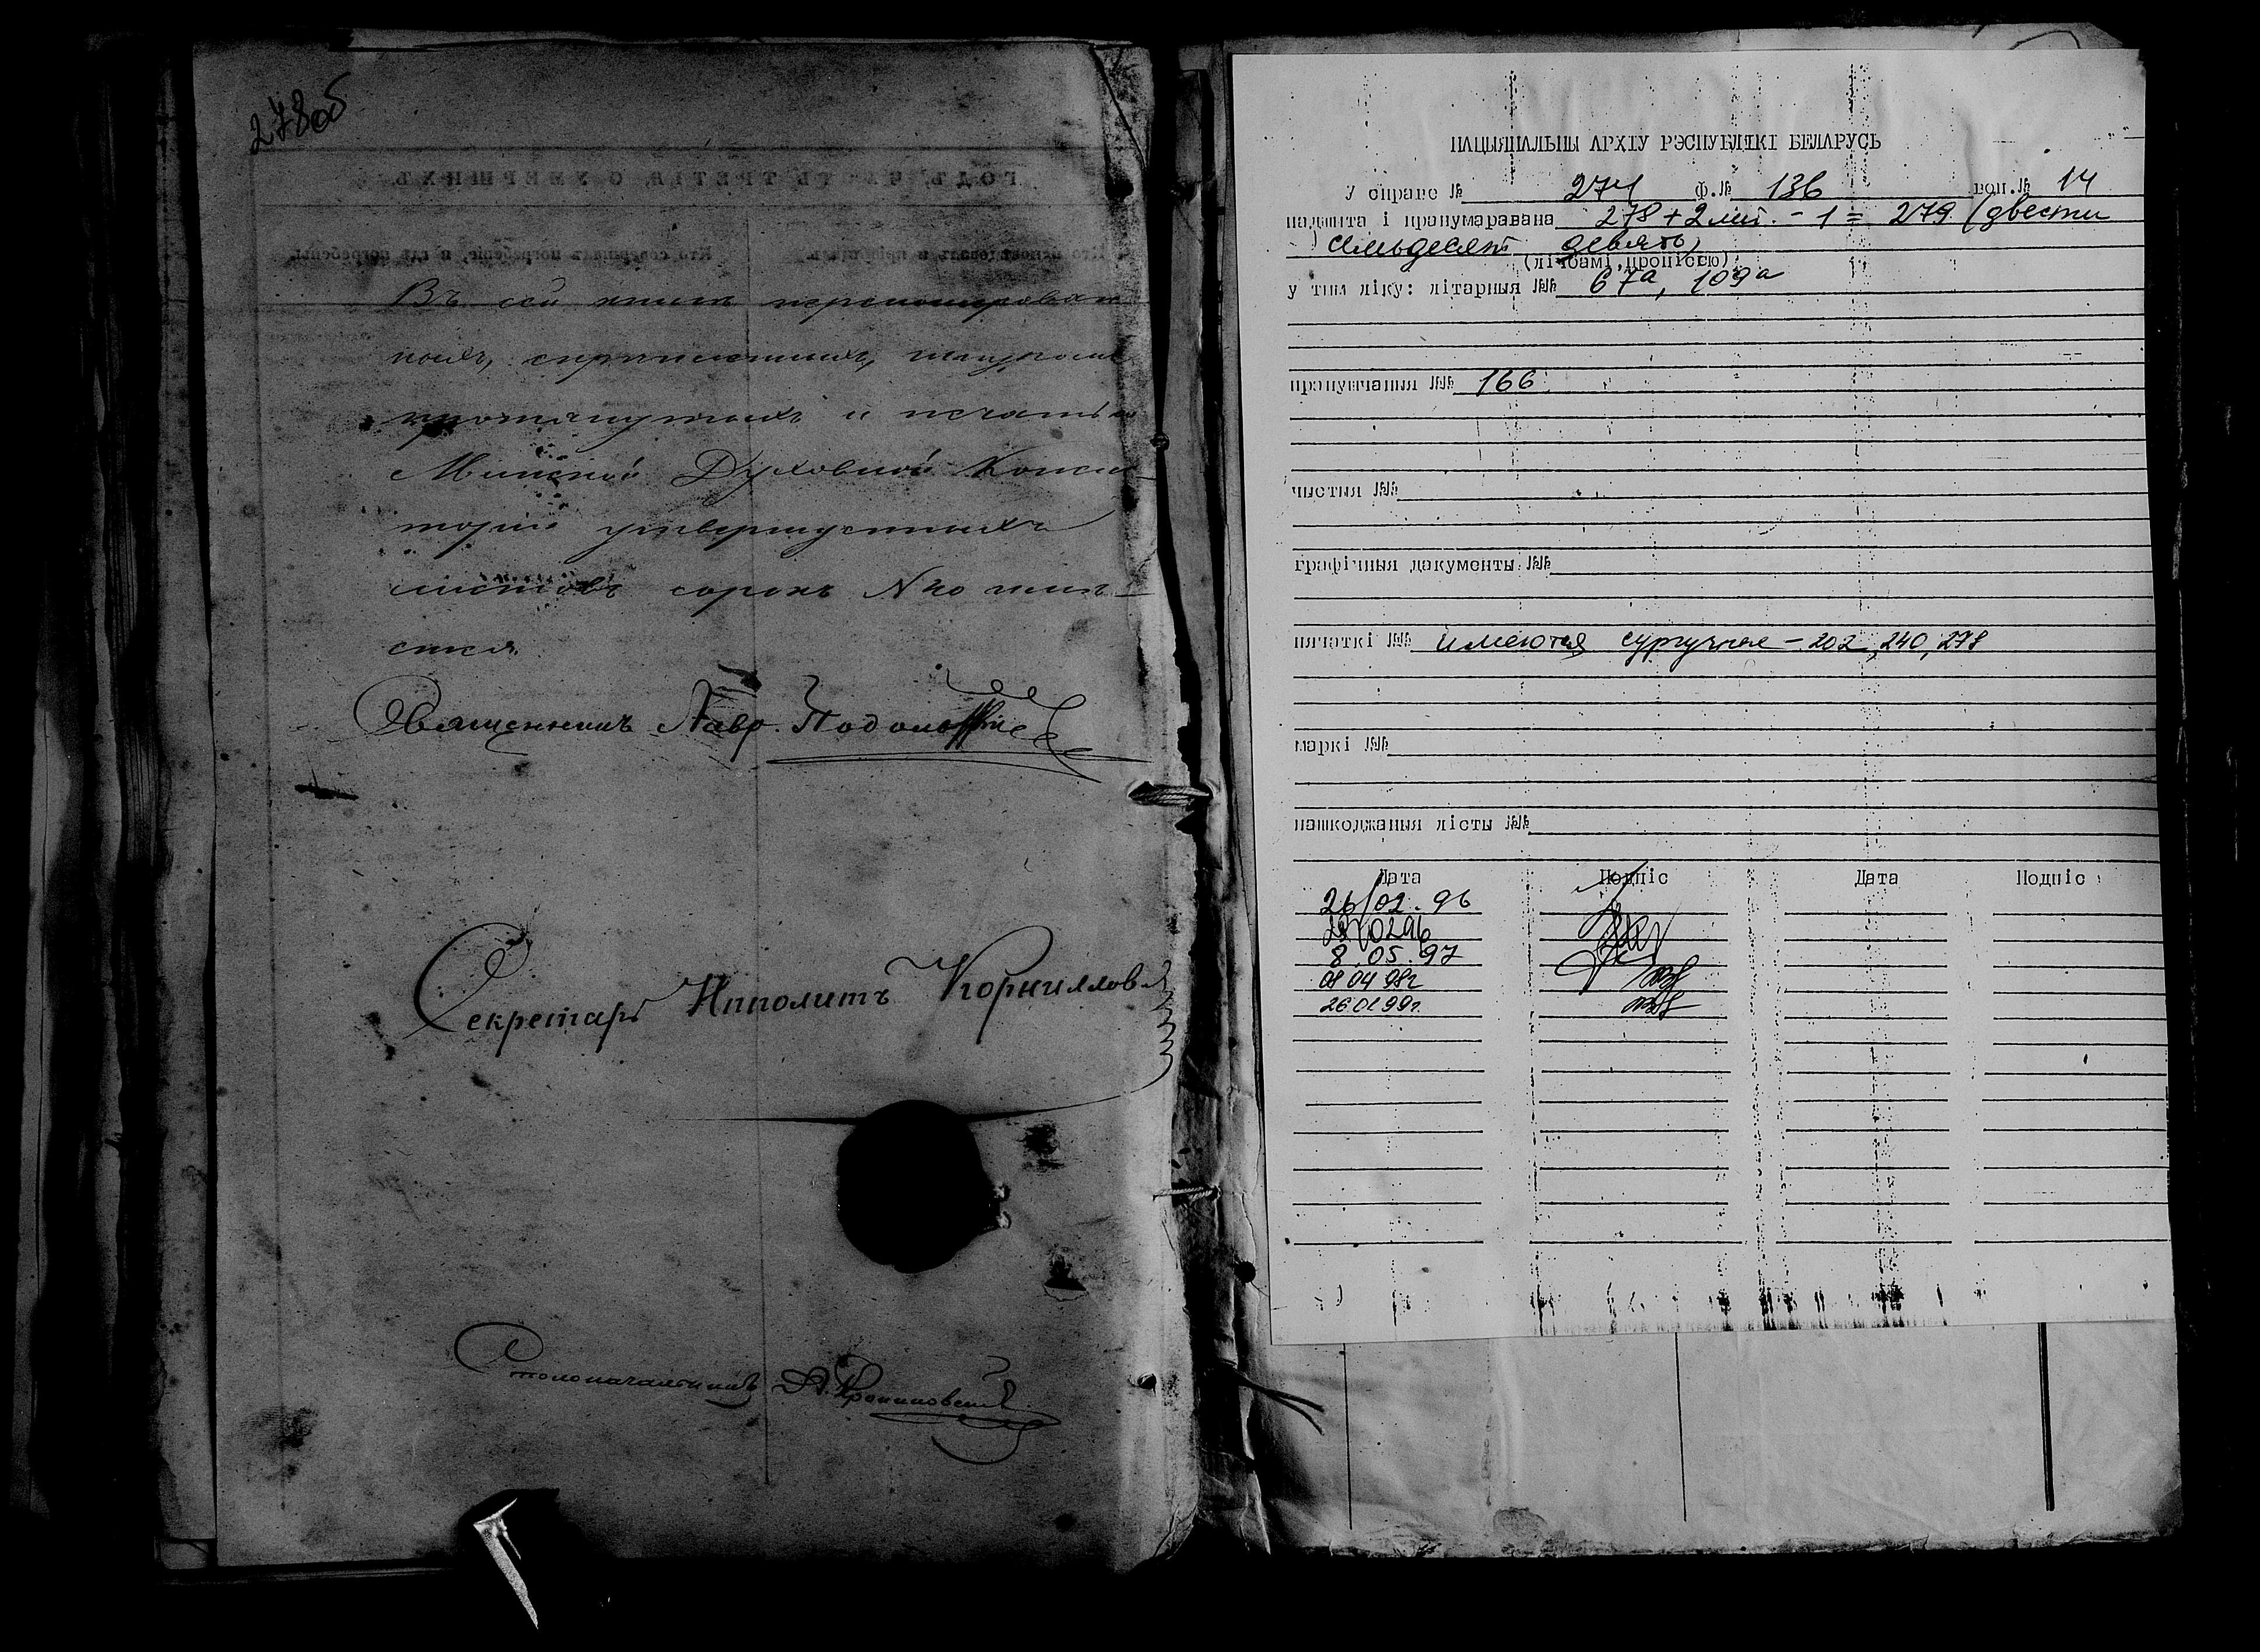 278об
ГОДЪ, ЧАСТЬ ТРЕТІЯ, О УМЕРШИХЪ.
Кто исповѣдывалъ и пріобщалъ. Кто совершалъ погребеніе, и гдѣ погребены.
Въ сей книгѣ перенумерован
ныхъ, скрепленныхъ, шнуромъ
протянутыхъ и печатью
Минской Духовной Конси
торіи утвержденныхъ
листовъ сорокъ N 40 лист
Священникъ Лавр.
Секретарь Ипполитъ Корниловъ
Столоначальникъ
НАЦЫЯНАЛЬНЫ АРХІУ РЭСПУБЛІКІ БЕЛАРУСЬ
У справе № 274 ф.№ 136 воп.№ 14
падшыта і пранумаравана 278 + 2 лит. - 1 = 279 (двести
семьдесят девять)
(лічбамі, пропіссю)
у тым ліку: літарныя №№ 67а, 109а
прапушчаныя №№ 166
чыстыя №№
графічныя дакументы №№
пячаткі №№ имеются сургучные - 202, 240, 278
маркі №№
пашкоджаныя лісты №№
Дата Подпіс Дата Подпіс
26/02.96
8.05.97
08 04 98г
26 01 99г.